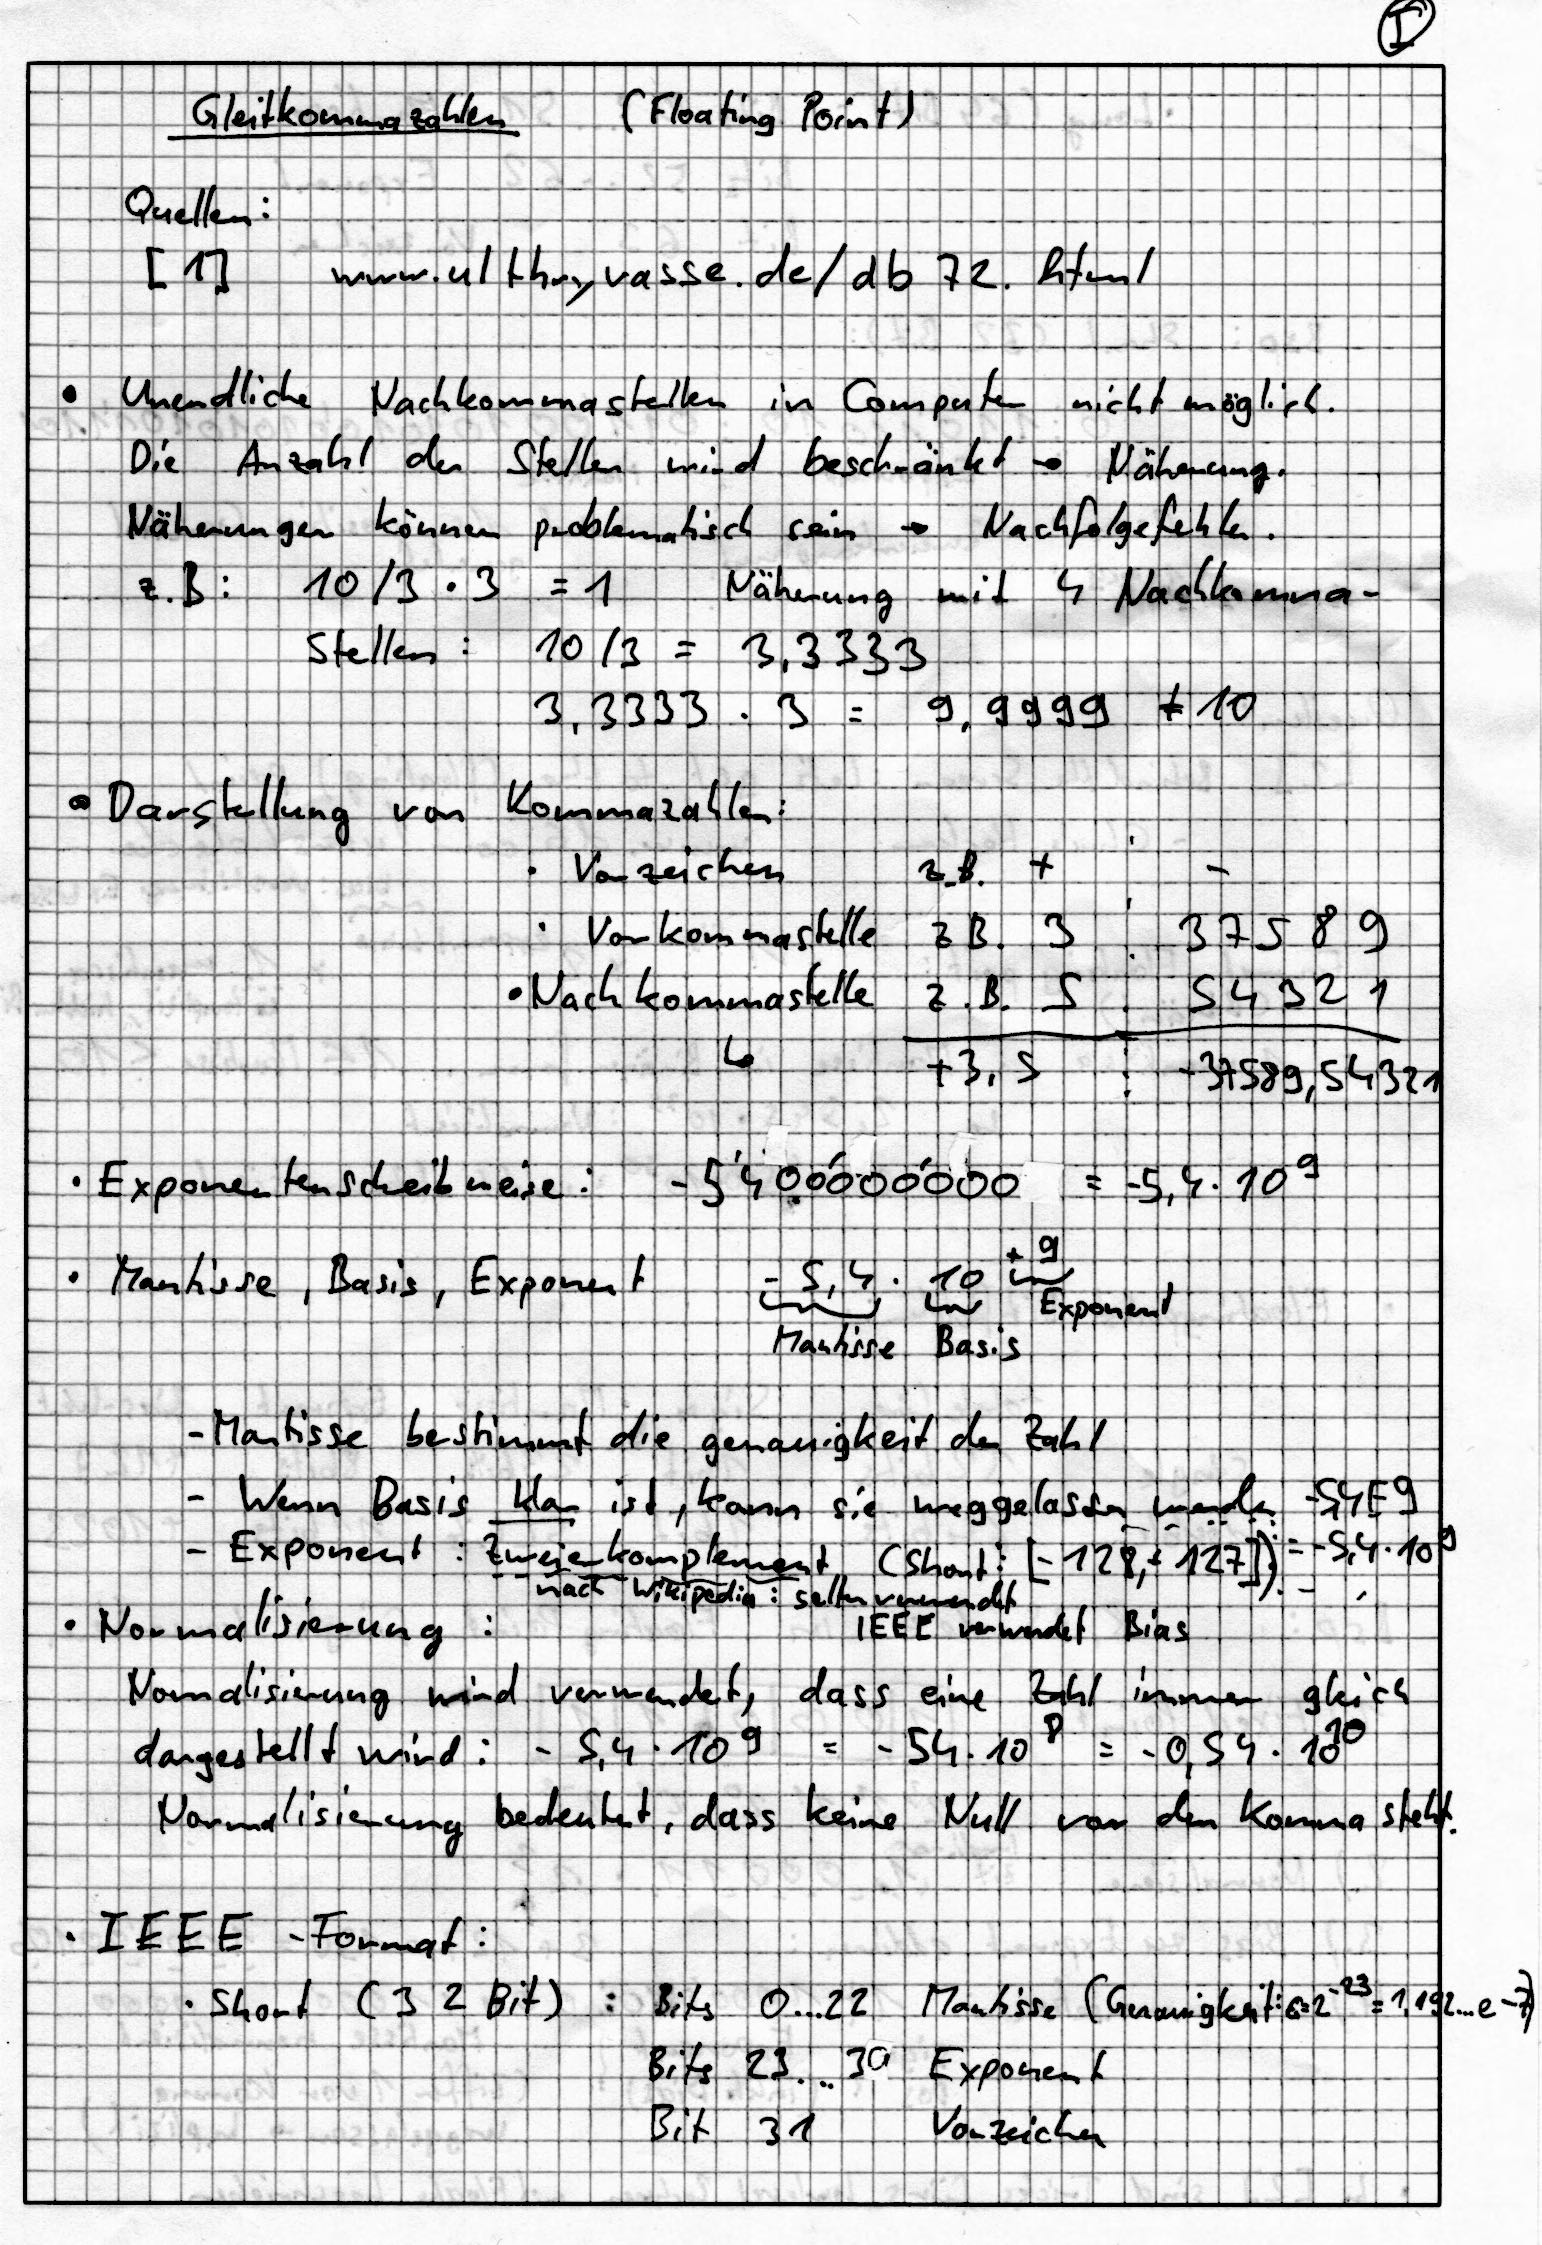 I
Gleitkommazahlen (Floating Point)
Quellen:
[1] www.ulthryvasse.de/db72.html
• Unendliche Nachkommastellen in Computer nicht möglich.
Die Anzahl der Stellen wird beschränkt → Näherung.
Näherungen können problematisch sein → Nachfolgefehler.
z.B: 10/3 · 3 = 1 Näherung mit 4 Nachkomma-
Stellen: 10/3 = 3,3333
3,3333 · 3 = 9,9999 ≠ 10
• Darstellung von Kommazahlen:
· Vorzeichen z.B. + -
· Vorkommastelle z B. 3 37589
• Nachkommastelle z.B. 5 54321
↳ +3,5 -37589,54321
· Exponentenschreibweise: -5'400'000'000 = -5,4·10⁹
· Mantisse, Basis, Exponent -5,4 · 10⁺⁹
Exponent
Mantisse Basis
- Mantisse bestimmt die genauigkeit der Zahl
- Wenn Basis klar ist, kann sie weggelassen werden -5,4E9
- Exponent: Zweierkomplement (Short: [-128,+127]) = -5,4·10⁹
nach Wikipedia: selten verwendet
· Normalisierung: IEEE verwendet Bias
Normalisierung wird verwendet, dass eine Zahl immer gleich
dargestellt wird: -5,4·10⁹ = -54·10⁸ = -0,54·10¹⁰
Normalisierung bedeutet, dass keine Null vor dem Komma steht.
· IEEE-Format:
· Short (32 Bit): Bits 0...22 Mantisse (Genauigkeit: ε=2⁻²³=1,192...e-7)
Bits 23...30 Exponent
Bit 31 Vorzeichen